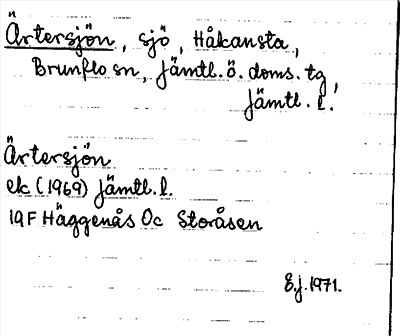 Ärtersjön, sjö, Håkansta,
Brunflo sn, Jämtl. ö. doms. tg,
Jämtl. l.
Ärtersjön
ek (1969) Jämtl. l.
19F Häggenås Oc Storåsen
E.j. 1971.